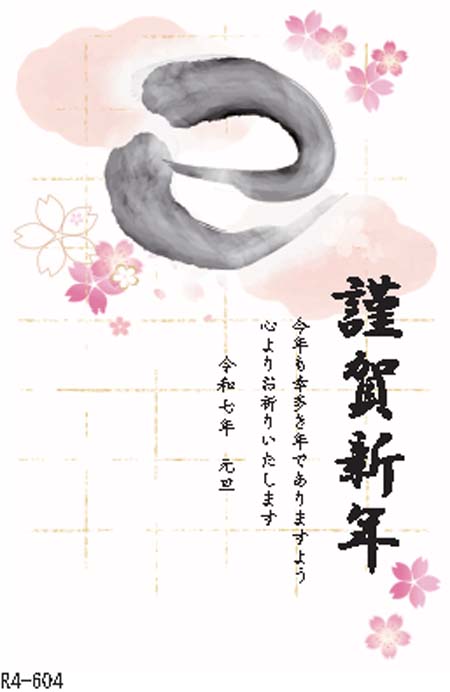 巳
謹賀新年
今年も幸多き年でありますよう
心よりお祈りいたします
令和七年　元旦
R4-604